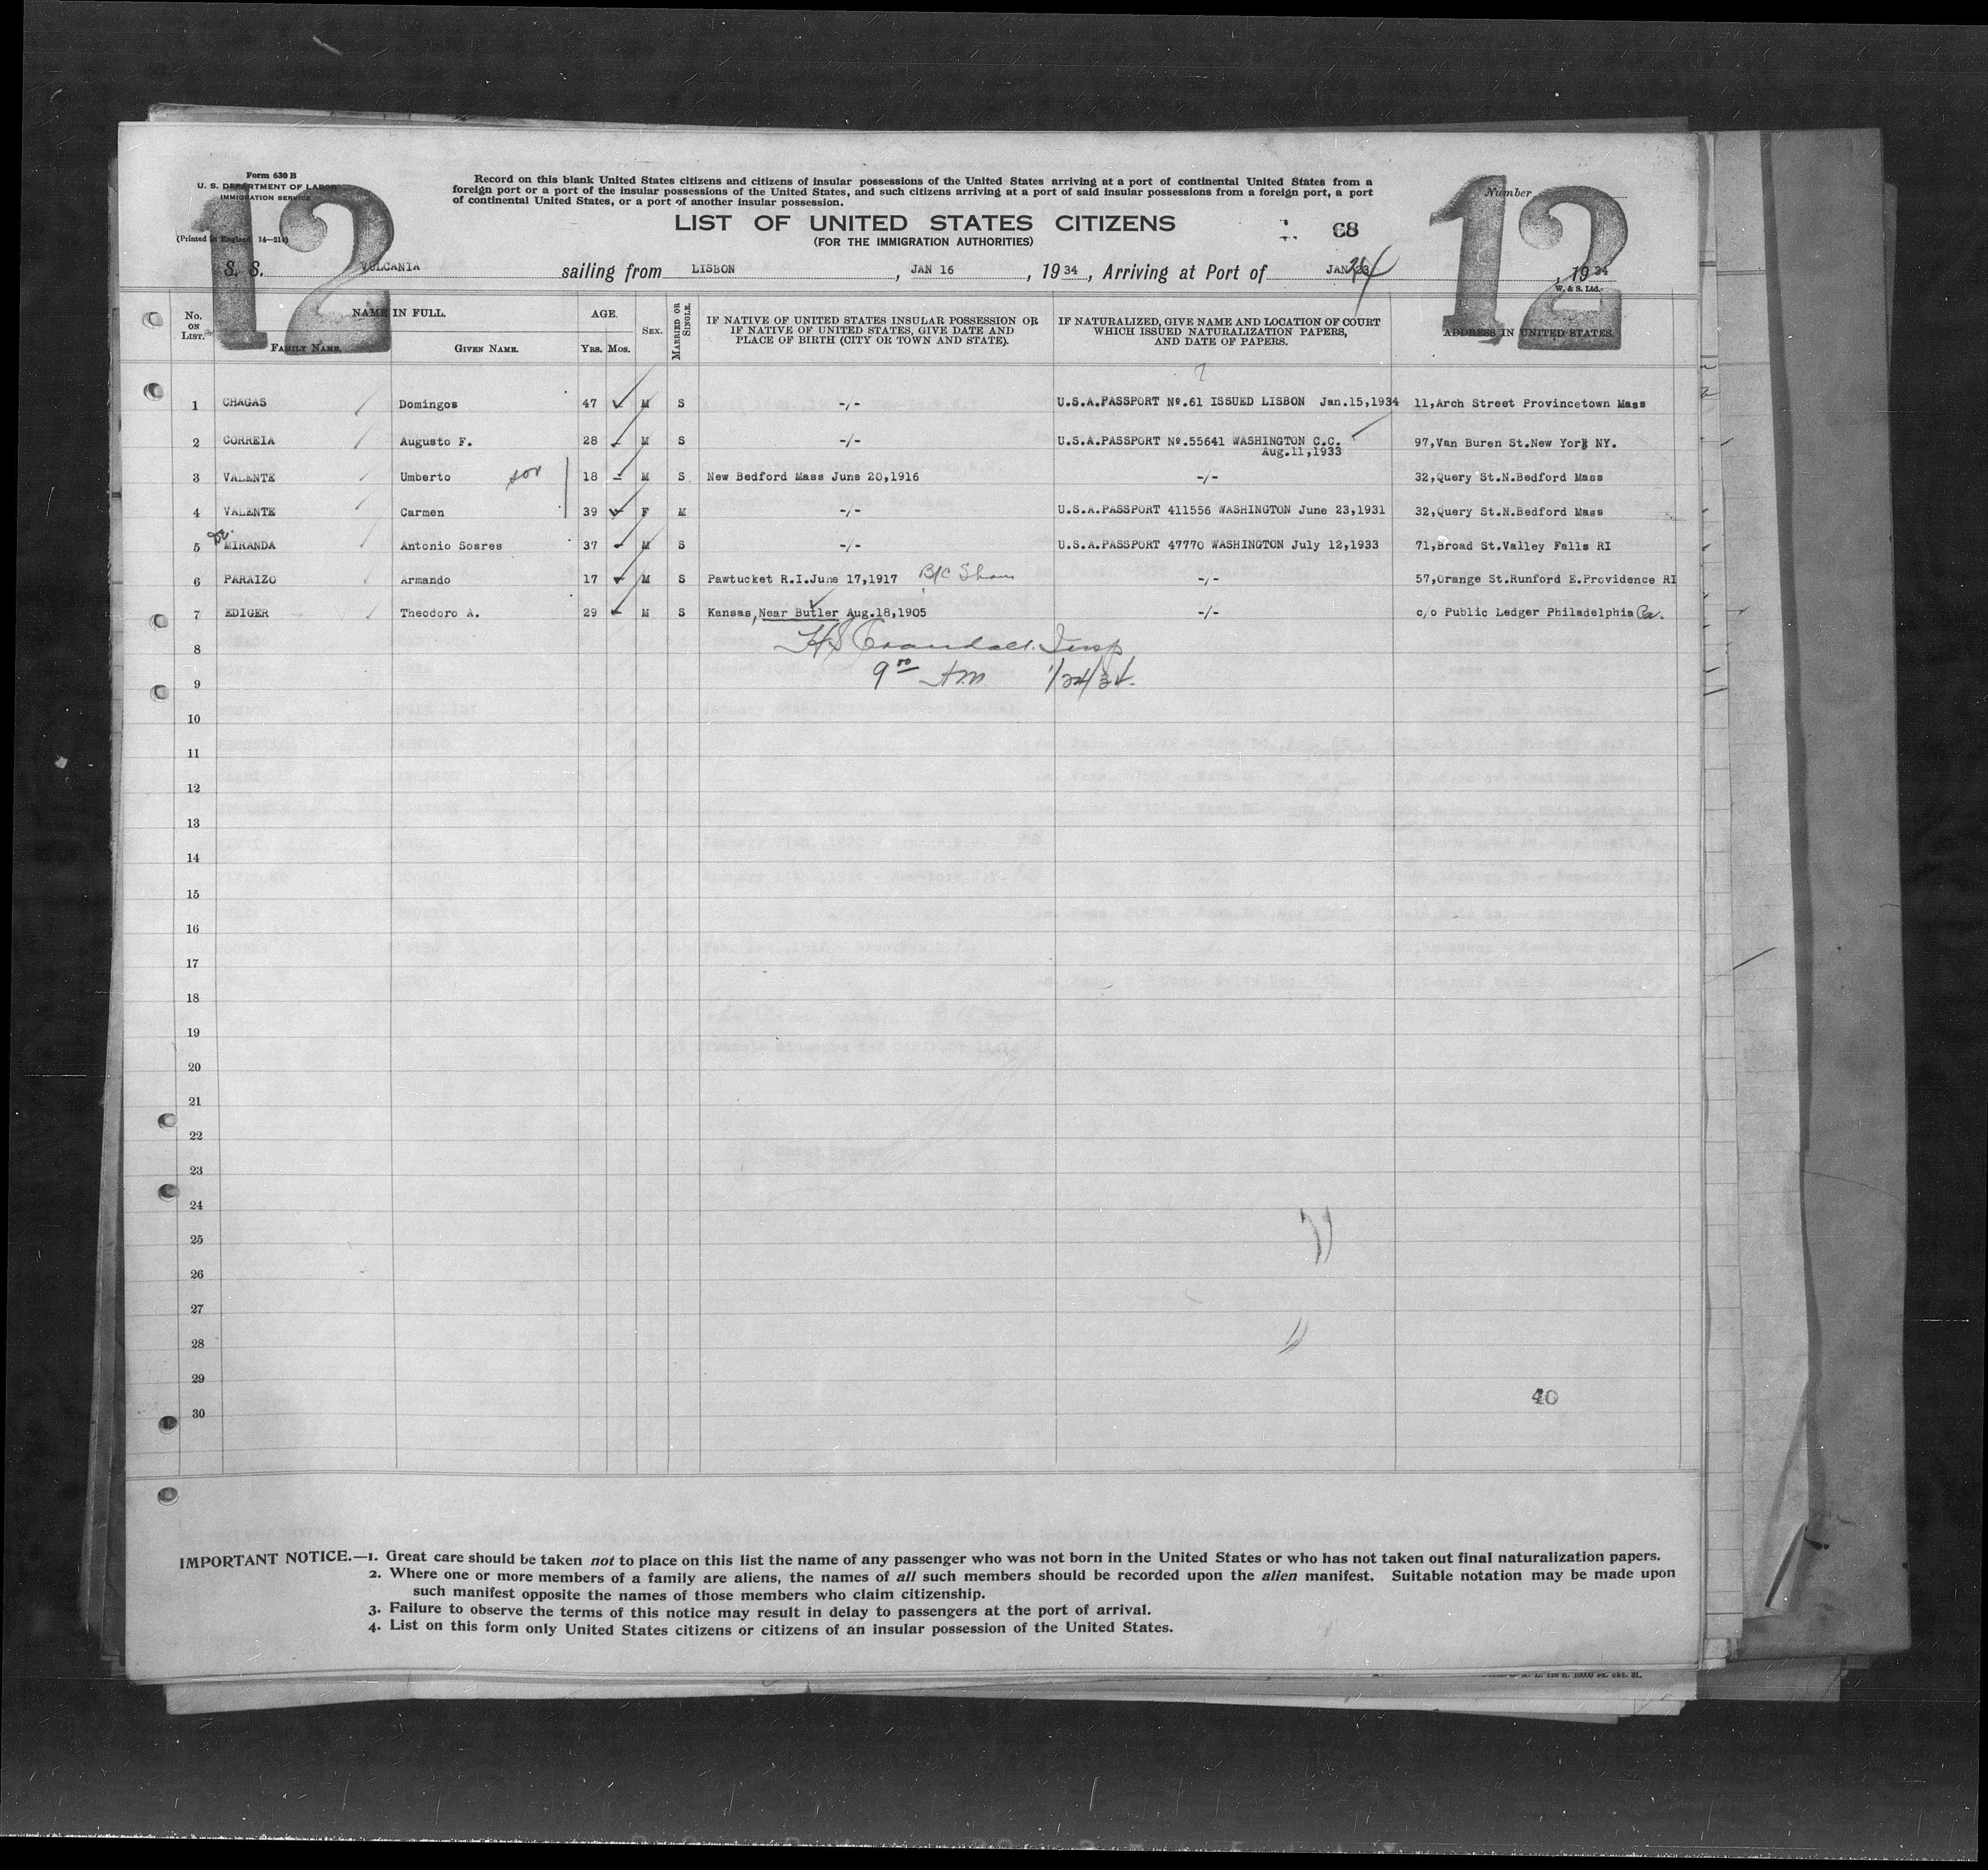 Form 630 B
U. S. DEPARTMENT OF LABOR
IMMIGRATION SERVICE
(Printed in England 14—213)
12
Record on this blank United States citizens and citizens of insular possessions of the United States arriving at a port of continental United States from a
foreign port or a port of the insular possessions of the United States, and such citizens arriving at a port of said insular possessions from a foreign port, a port
of continental United States, or a port of another insular possession.
Number
12
LIST OF UNITED STATES CITIZENS
(FOR THE IMMIGRATION AUTHORITIES)
68
S. S. VULCANIA sailing from LISBON, JAN 16, 1934, Arriving at Port of JAN 23 24, 1934
W. & S. Ltd.
No. ON LIST. NAME IN FULL. FAMILY NAME. GIVEN NAME. AGE. YRS. MOS. SEX. MARRIED OR SINGLE. IF NATIVE OF UNITED STATES INSULAR POSSESSION OR IF NATIVE OF UNITED STATES, GIVE DATE AND PLACE OF BIRTH (CITY OR TOWN AND STATE). IF NATURALIZED, GIVE NAME AND LOCATION OF COURT WHICH ISSUED NATURALIZATION PAPERS, AND DATE OF PAPERS. ADDRESS IN UNITED STATES.
1 CHAGAS Domingos 47 M S -/- U.S.A.PASSPORT Nº.61 ISSUED LISBON Jan.15,1934 11,Arch Street Provincetown Mass
2 CORREIA Augusto F. 28 M S -/- U.S.A.PASSPORT Nº.55641 WASHINGTON C.C. 97,Van Buren St.New York NY.
Aug.11,1933
3 VALENTE Umberto son 18 M S New Bedford Mass June 20,1916 -/- 32,Query St.N.Bedford Mass
4 VALENTE Carmen 39 F M -/- U.S.A.PASSPORT 411556 WASHINGTON June 23,1931 32,Query St.N.Bedford Mass
5 de MIRANDA Antonio Soares 37 M S -/- U.S.A.PASSPORT 47770 WASHINGTON July 12,1933 71,Broad St.Valley Falls RI
6 PARAIZO Armando 17 M S Pawtucket R.I.June 17,1917 B/C Shown -/- 57,Orange St.Runford E.Providence RI
7 EDIGER Theodoro A. 29 M S Kansas, Near Butler Aug.18,1905 -/- c/o Public Ledger Philadelphia Pa.
8 HS Crandall. Insp
9 9 00 A.M. 1/24/34.
10
11
12
13
14
15
16
17
18
19
20
21
22
23
24
25
26
27
28
29
30
40
IMPORTANT NOTICE.—1. Great care should be taken not to place on this list the name of any passenger who was not born in the United States or who has not taken out final naturalization papers.
2. Where one or more members of a family are aliens, the names of all such members should be recorded upon the alien manifest. Suitable notation may be made upon
such manifest opposite the names of those members who claim citizenship.
3. Failure to observe the terms of this notice may result in delay to passengers at the port of arrival.
4. List on this form only United States citizens or citizens of an insular possession of the United States.